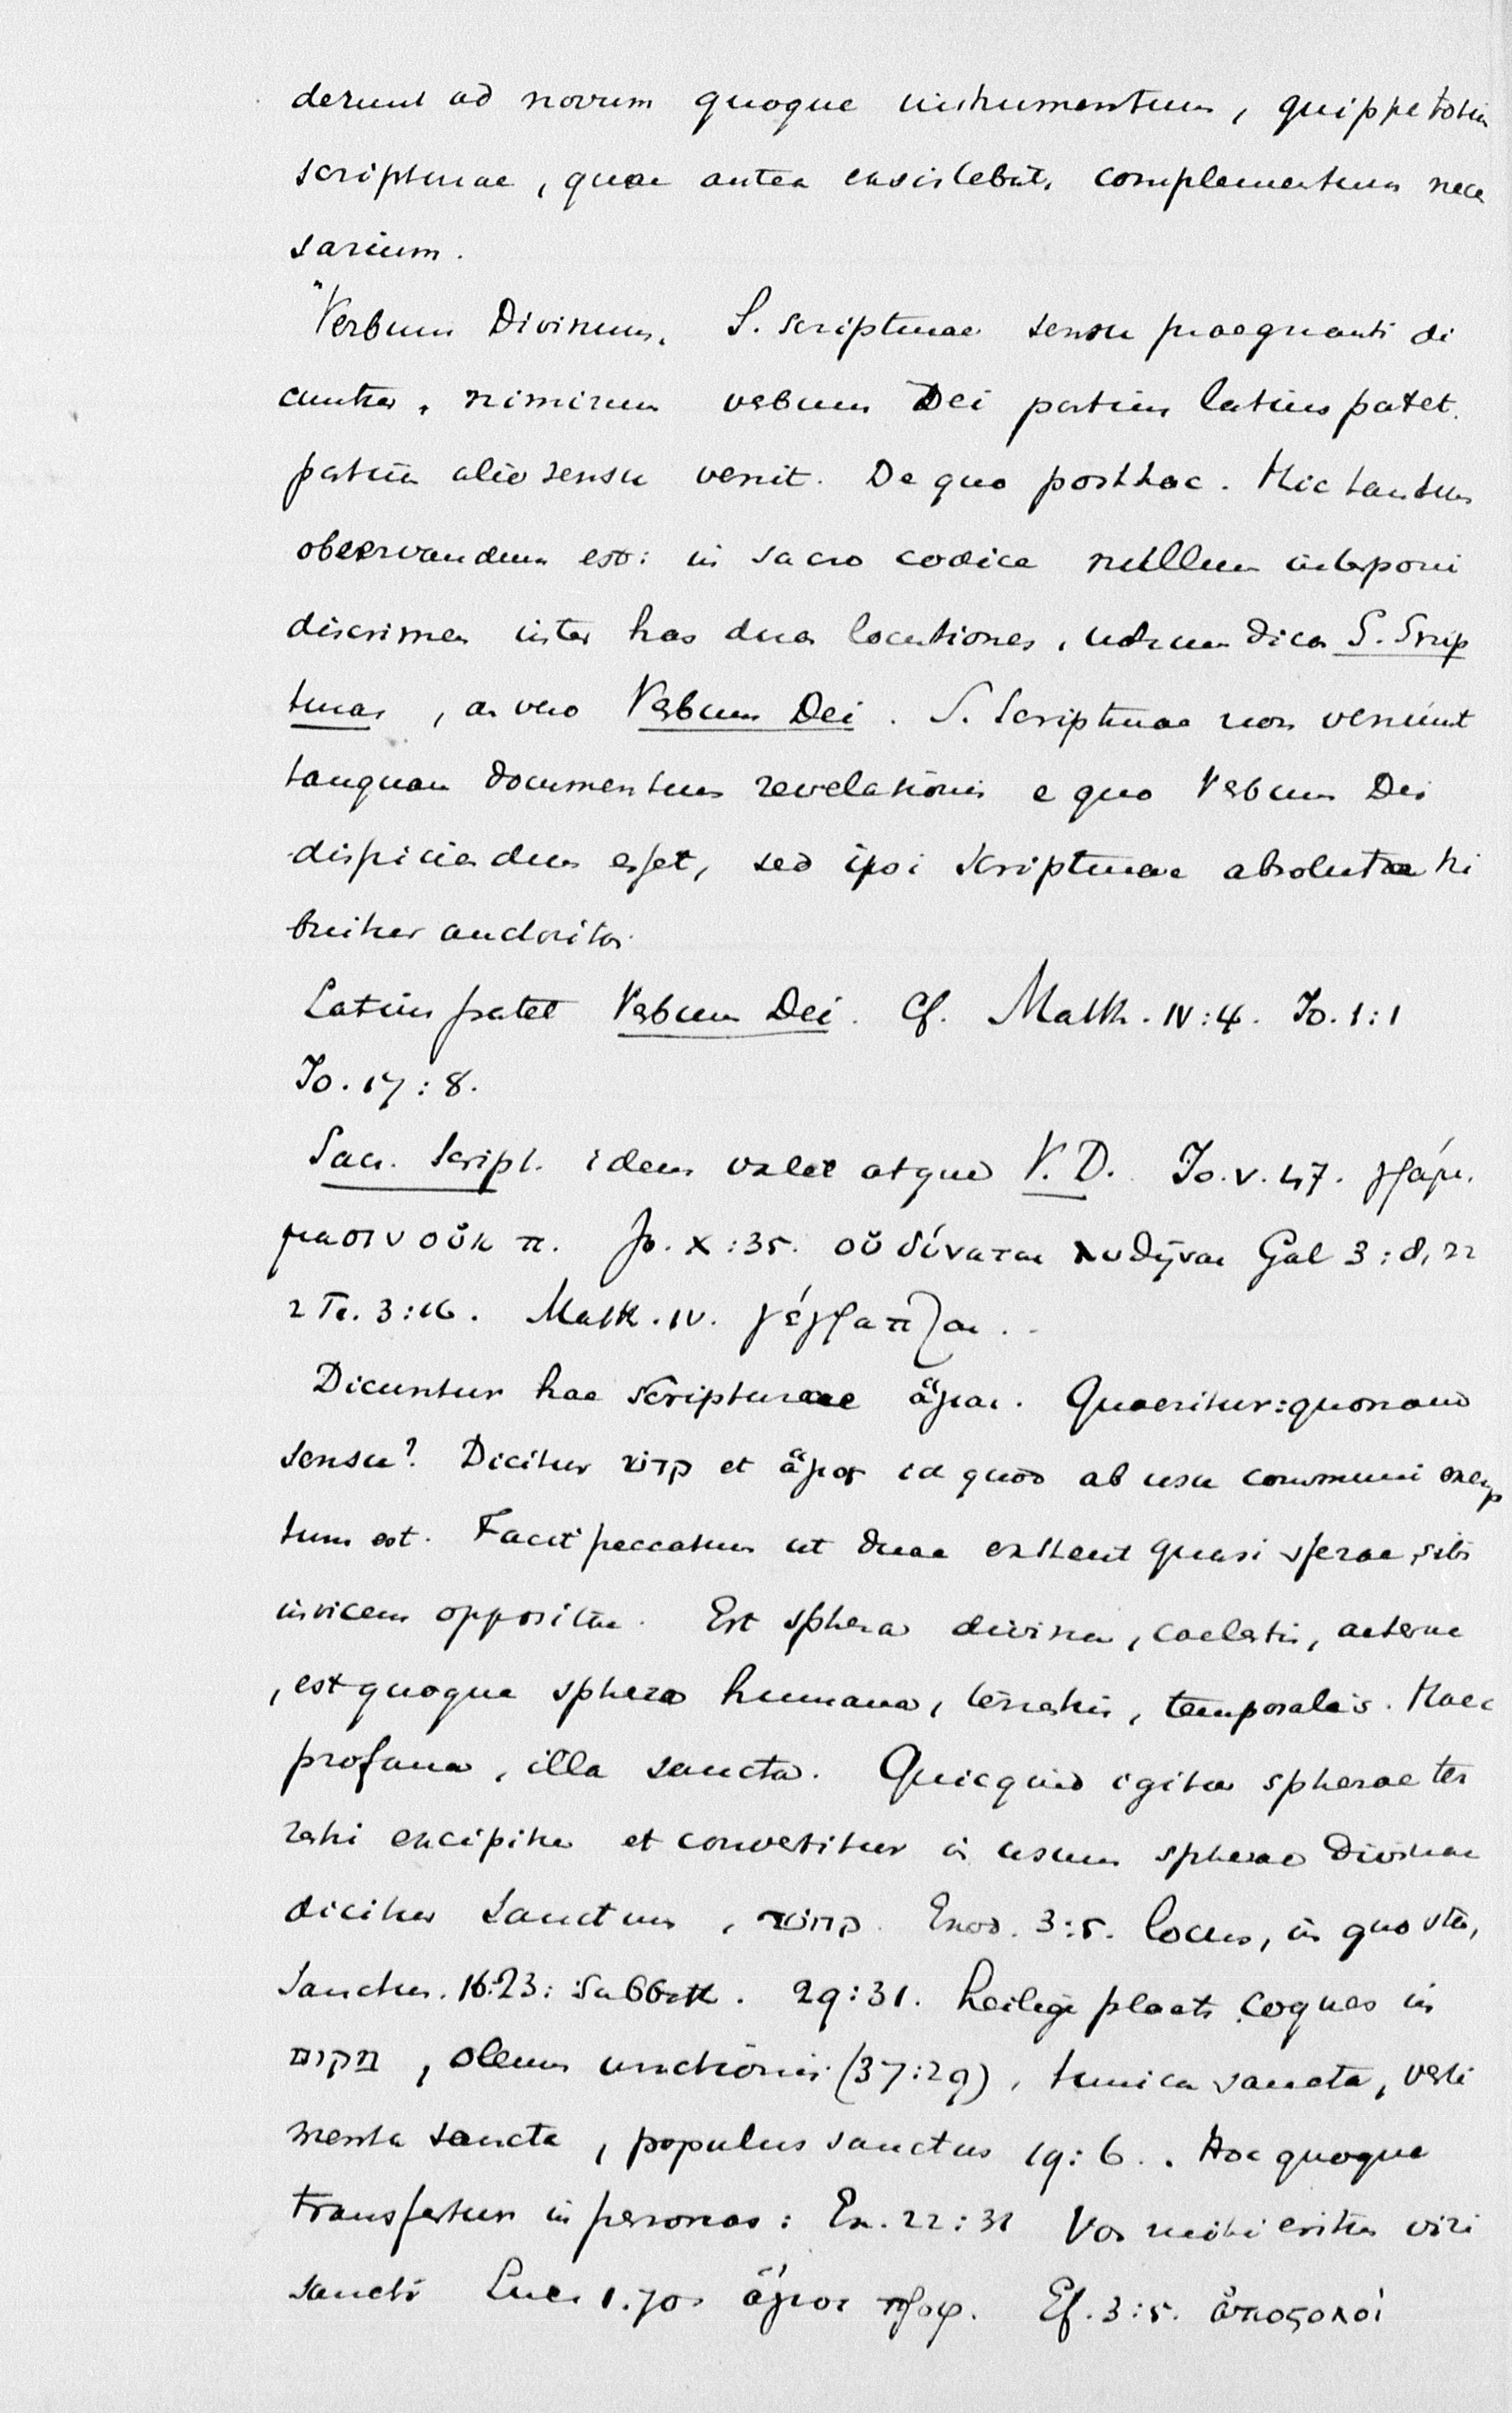 derunt ad novum quoque instrumentum, quippe totius
scripturae, quae antea exsistebat, complementum neces
sarium.
"Verbum Divinum„ S. scripturae sensu praegnanti di
cuntur, nimirum verbum Dei partim latius patet,
partim alio sensu venit. De quo posthac. Hic tantum
observandum est: in sacro codice nullum interponi
discrimen inter has duas locutiones, utrum dicas S. Scrip
turas, an vero Verbum Dei. S. Scripturae non veniunt
tanquam documentum revelationis e quo Verbum Dei
dispiciendum esset, sed ipsi scripturae absoluta tri
buitur auctoritas.
Latius patet Verbum Dei. Cf. Matth. IV:4. Io. 1:1
Io. 17:8.
Sacr. Script. idem valet atque V. D. Io. V. 47. γράμ.
μασιν οὐκ π. Jo. X:35. οὐ δύναται λυθῆναι Gal 3:8, 22
2 Ti. 3:16. Matth. IV. γέγραπται.
Dicuntur hae scripturae ἅγιαι. Quaeritur: quonam
sensu? Dicitur קדוש et ἅγιος id quod ab usu communi exemp
tum est. Facit peccatum ut duae exstent quasi sferae, sibi
invicem oppositae. Est sphera divina, caelestis, aeterna
, est quoque sphera humana, terrestris, temporalis. Haec
profana, illa sancta. Quicquid igitur spherae ter
restri excipitur et convertitur in usum spherae divinae
dicitur sanctum, קדוש. Exod. 3:5. locus, in quo stas,
sanctus. 16:23: Sabbath. 29:31. heilige plaats coques in
, oleum unctionis (37:29), tunica sancta, vesti
menta sancta, populus sanctus 19:6.. Hoc quoque
transfertur in personas: Ex. 22:31 Vos mihi eritis viri
sancti Luc. 1.70. ἅγιοι προφ. Ef. 3:5. ἀποςολοί